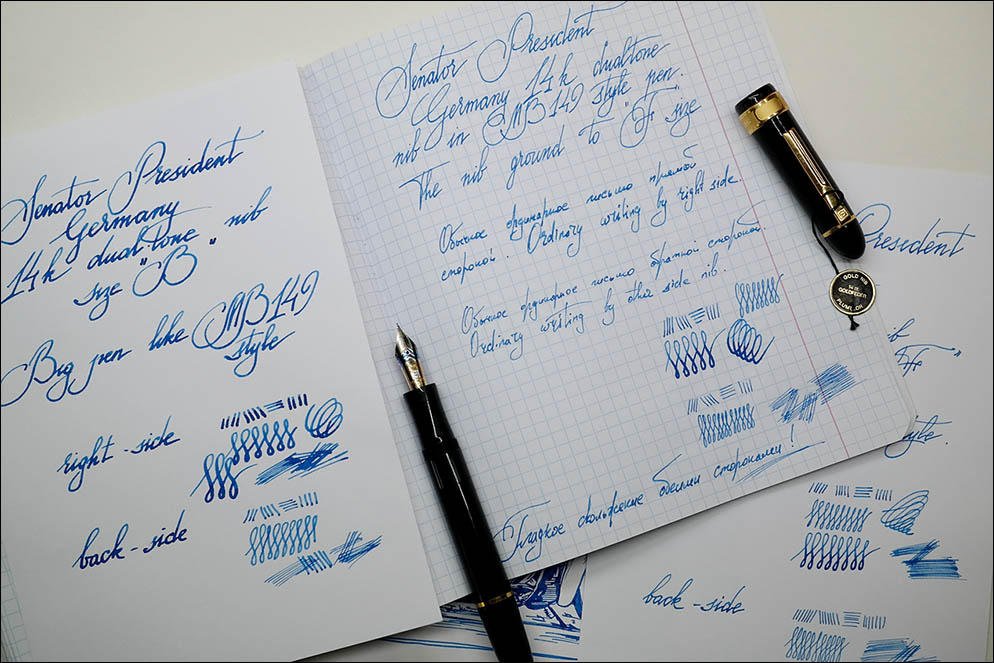 Senator President
Germany
14k dual-tone nib
size "B"
Big pen like MB149
style
right-side
back-side
Senator President
Germany 14k dualtone
nib in MB149 style pen.
The nib ground to "F" size
Обычное ординарное письмо прямой
стороной. Ordinary writing by right side.
Обычное ординарное письмо обратной стороной.
Ordinary writing by other side nib.
Гладкое скольжение обеими сторонами!
GOLD NIB
14 ct.
GOLDFEDER
PLUME OR
President
nib
"F"
style.
back-side